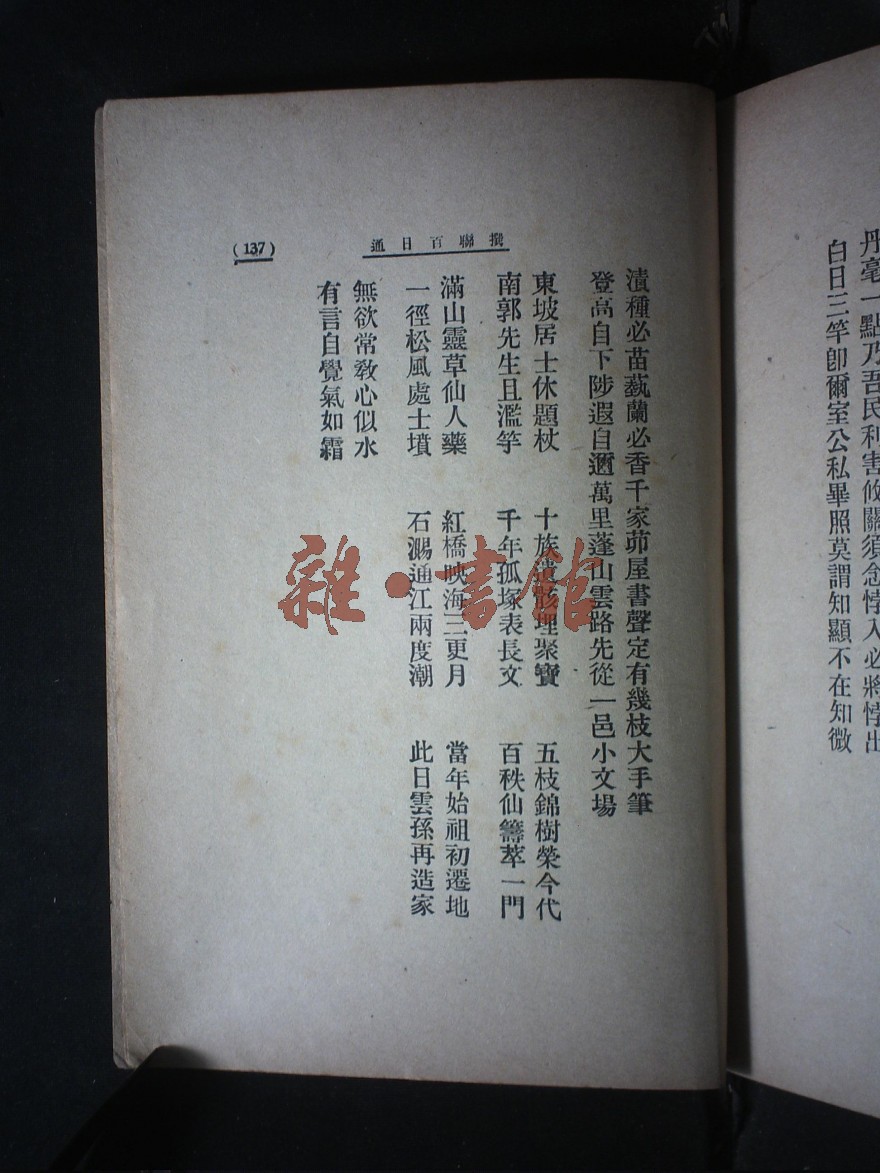 丹毫一點乃吾民利害攸關須念悖入必將悖出
白日三竿卽爾室公私畢照莫謂知顯不在知微
撰聯百日通
(137)
漬種必苗蓺蘭必香千家茆屋書聲定有幾枝大手筆
登高自下陟遐自邇萬里蓬山雲路先從一邑小文場
東坡居士休題杖 十族遺骸埋聚寶 五枝錦樹榮今代
南郭先生且濫竽 千年孤塚表長文 百秩仙籌萃一門
滿山靈草仙人藥 紅橋映海三更月 當年始祖初遷地
一徑松風處士墳 石通江兩度潮 此日雲孫再造家
無欲常敎心似水
有言自覺氣如霜
雜·書館